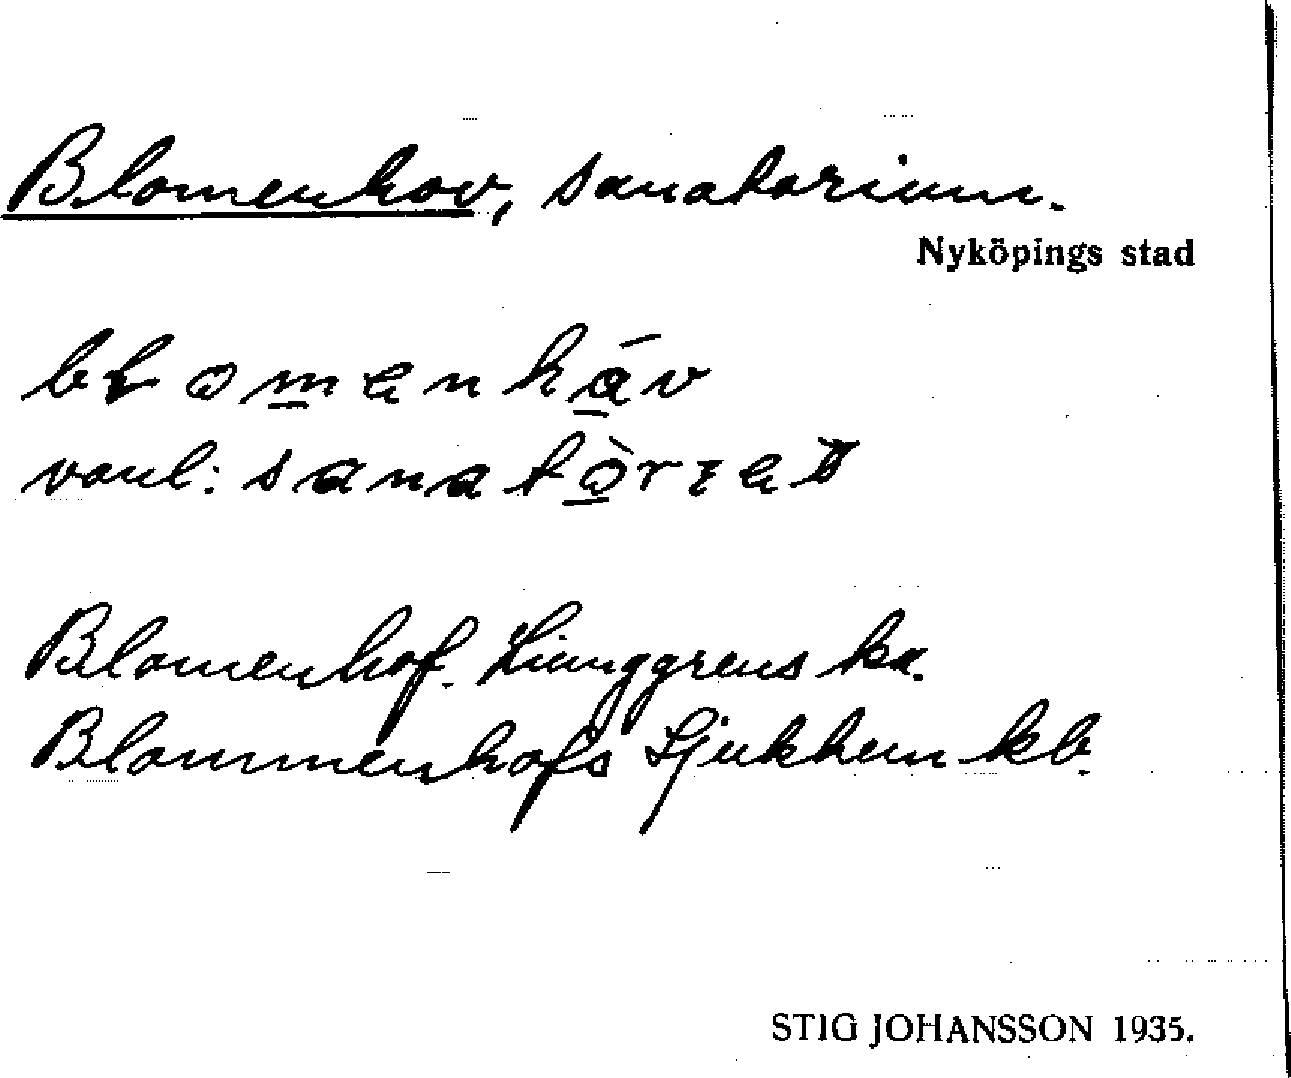 Blomenhov, sanatorium.
Nyköpings stad
blomenhåv
vanl: sanatòrıet
Blomenhof. Ljunggrens ka.
Blommenhofs Sjukhem kb.
STIG JOHANSSON 1935.